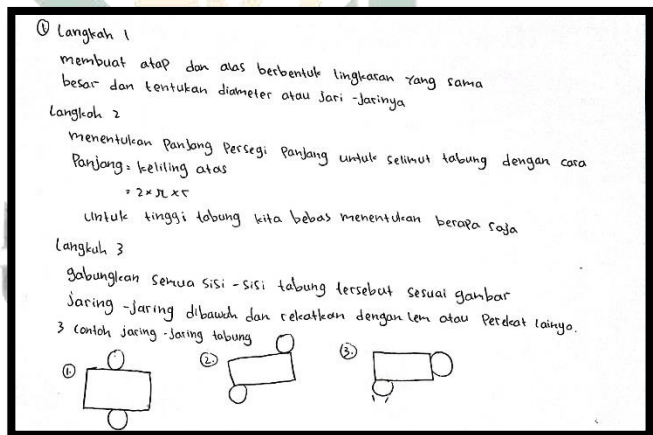 ① Langkah 1
membuat atap dan alas berbentuk lingkaran yang sama
besar dan tentukan diameter atau jari-jarinya
Langkah 2
menentukan panjang persegi panjang untuk selimut tabung dengan cara
Panjang = keliling atas
= 2 × π × r
untuk tinggi tabung kita bebas menentukan berapa saja
Langkah 3
gabungkan semua sisi-sisi tabung tersebut sesuai gambar
jaring-jaring dibawah dan rekatkan dengan lem atau Perekat lainyo.
3 contoh jaring-jaring tabung
①. ②. ③.